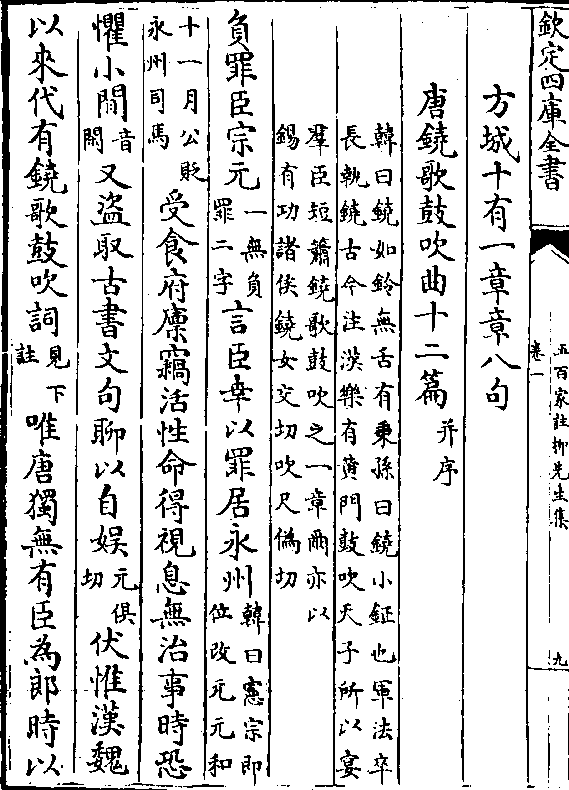 欽定四庫全書
五百家註柳先生集
卷一
九
方城十有一章章八句
唐鐃歌鼓吹曲十二篇并序
韓曰鐃如鈴無舌有秉孫曰鐃小鉦也軍法卒
長執鐃古今注漢樂有黄門鼓吹天子所以宴
羣臣短簫鐃歌鼓吹之一章爾亦以
錫有功諸侯鐃女交切吹尺偽切
負罪臣宗元一無負罪二字言臣幸以罪居永州韓曰憲宗即位改元元和
十一月公貶永州司馬受食府廩竊活性命得視息無治事時恐
懼小閒音閑又盜取古書文句聊以自娱元俱切伏惟漢魏
以來代有鐃歌鼓吹詞見下註唯唐獨無有臣為郎時以